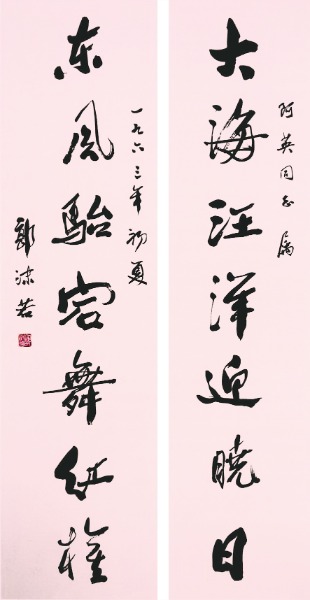 阿英同志属
大海汪洋迎曉日
东风駘宕舞红旗
一九六三年初夏
郭沫若